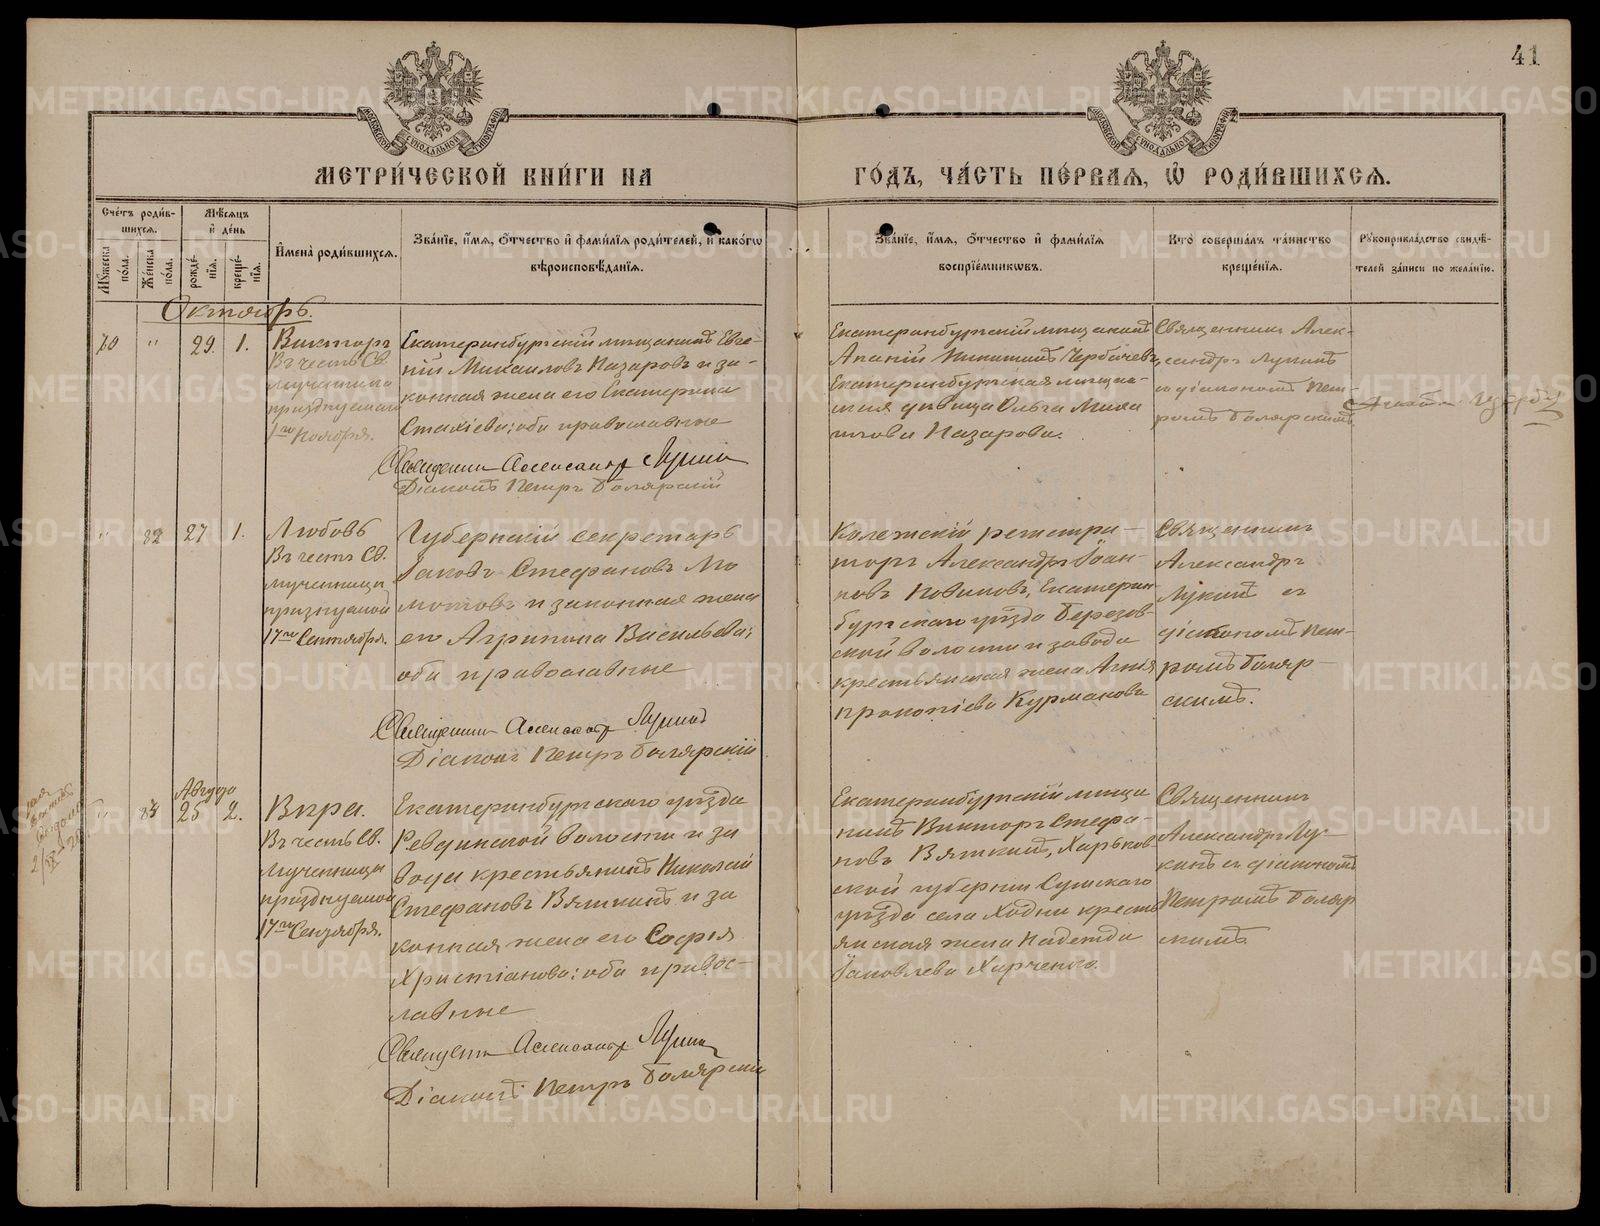 41
МЕТРИ́ЧЕСКОЙ КНИ́ГИ НА
ГО́ДЪ, ЧА́СТЬ ПЕ́РВАЯ, Ѡ҆ РОДИ́ВШИХСЯ.
МОСКОВСКОЙ СѴНОДАЛЬНОЙ ТИПОГРАФІИ
МОСКОВСКОЙ СѴНОДАЛЬНОЙ ТИПОГРАФІИ
Сче́тъ роди́в-
шихся.
Мꙋ́жеска по́ла.
Же́нска по́ла.
Мѣ́сяцъ
и҆ де́нь
рожде́-
нїя.
креще́-
нїя.
И҆мена̀ роди́вшихся.
Зва́нїе, и҆́мя, ѻ҆́тчество и҆ фами́лїя роди́телей, и҆ како́гѡ
вѣроисповѣ́данїя.
Зва́нїе, и҆́мя, ѻ҆́тчество и҆ фами́лїя
воспрїе́мникѡвъ.
Кто̀ соверша́лъ та́инство
креще́нїя.
Рꙋкоприкла́дство свидѣ́-
телей за́писи по жела́нїю.
Октябрь.
70 " 29. 1.
Викторъ
Въ честь Св.
мученика
празднуемаго
1го Ноября.
Екатеринбургскій мѣщанинъ Евге-
ній Михаиловъ Назаровъ и за-
конная жена его Екатерина
Стахіева; оба православные
Священникъ Александръ Лукинъ
Діаконъ Петръ Болярскій
Екатеринбургскій мѣщанинъ
Екатеринбургская мѣщан-
ская дѣвица Ольга Михаи
лова Назарова.
Священникъ Алек-
сандръ Лукинъ
съ діакономъ Пет-
ромъ Болярскимъ
" 82 27 1.
Любовь
Въ честь Св.
мученицы
празнуемой
17го Сентября.
Губернскій секретарь
Іаковъ Стефановъ Мо
мотовъ и законная жена
его Агрипина Васильева;
оба православные
Священникъ Александръ Лукинъ
Діаконъ Петръ Болярскій
Колежскій регистра-
торъ Александръ Іоан-
новъ Новиковъ, Екатерин-
бургскаго уѣзда Березов-
ской волости и завода
крестьянская жена Агнія
Прокопіева Курмакова
Священникъ
Александръ
Лукинъ съ
діакономъ Пет-
ромъ Боляр-
скимъ.
Августа
" 83 25 2.
Вѣра.
Въ честь Св.
Мученицы
празднуемой
17го Сентября.
Екатеринбургскаго уѣзда
Ревдинской волости и за
вода крестьянинъ Николай
Стефановъ Вяткинъ и за
конная жена его Софія
Христіанова; оба правос-
лавные
Священникъ Александръ Лукинъ
Діаконъ Петръ Болярскій
Екатеринбургскій мѣща
нинъ Викторъ Стефа-
новъ Вяткинъ, Харьков
ской губерніи Сумскаго
уѣзда села Ходни кресть
янская жена Надежда
Іаковлева Харченко.
Священникъ
Александръ Лу-
кинъ съ діакономъ
Петромъ Боляр
скимъ
METRIKI.GASO-URAL.RU